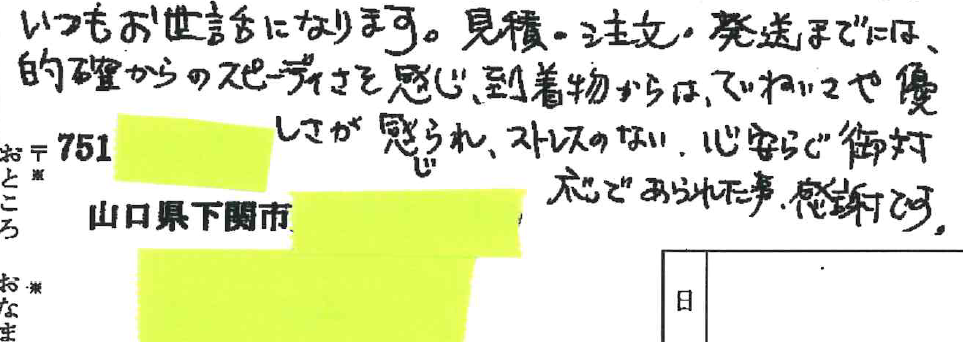 いつもお世話になります。見積・注文・発送までには、
的確からのスピーディさを感じ、到着物からは、ていねいさや優
しさが感じられ、ストレスのない、心安らぐ御対
応であられた事、感謝です。
〒※ 751
山口県下関市
おところ
※
おなま
日